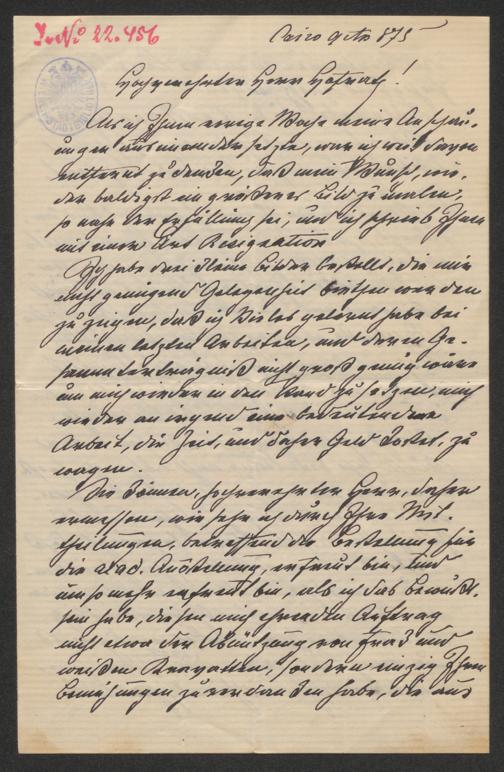 I.N. 22.456
Cairo 9 [...] 875
Hochverehrter Herr Hofrath!
Als ich Ihnen einige Wochen meine Anschau-
ungen auseinander setzte, war ich weit davon
entfernt zu denken, daß mein Wunsch, wie-
der baldigst ein größeres Bild zu malen,
so nahe der Erfüllung sei, und ich schrieb Ihnen
mit einer Art Resignation
Ich habe drei kleine Bilder bestellt, die mir
nicht genügend Gelegenheit biethen werden
zu zeigen, daß ich Vieles gelernt habe bei
meinen letzten Arbeiten, und deren Ge-
sammterträgniß nicht groß genug wäre
um mich wieder in den Stand zu setzen, mich
wieder an irgend eine bedeutendere
Arbeit, die Zeit, und daher Geld kostet, zu
wagen.
Sie können, hochverehrter Herr, daher
ermessen, wie sehr ich durch Ihre Mit-
theilungen, betreffend die Bestellung für
die akad. Ausstellung, erfreut bin, und
um so mehr erfreut bin, als ich das Bewußt-
sein habe, diesen mich ehrenden Auftrag
nicht etwa der Abnützung von Frak und
weißen Kravatten, sondern einzig Ihren
Bemühungen zu verdanken habe, die aus